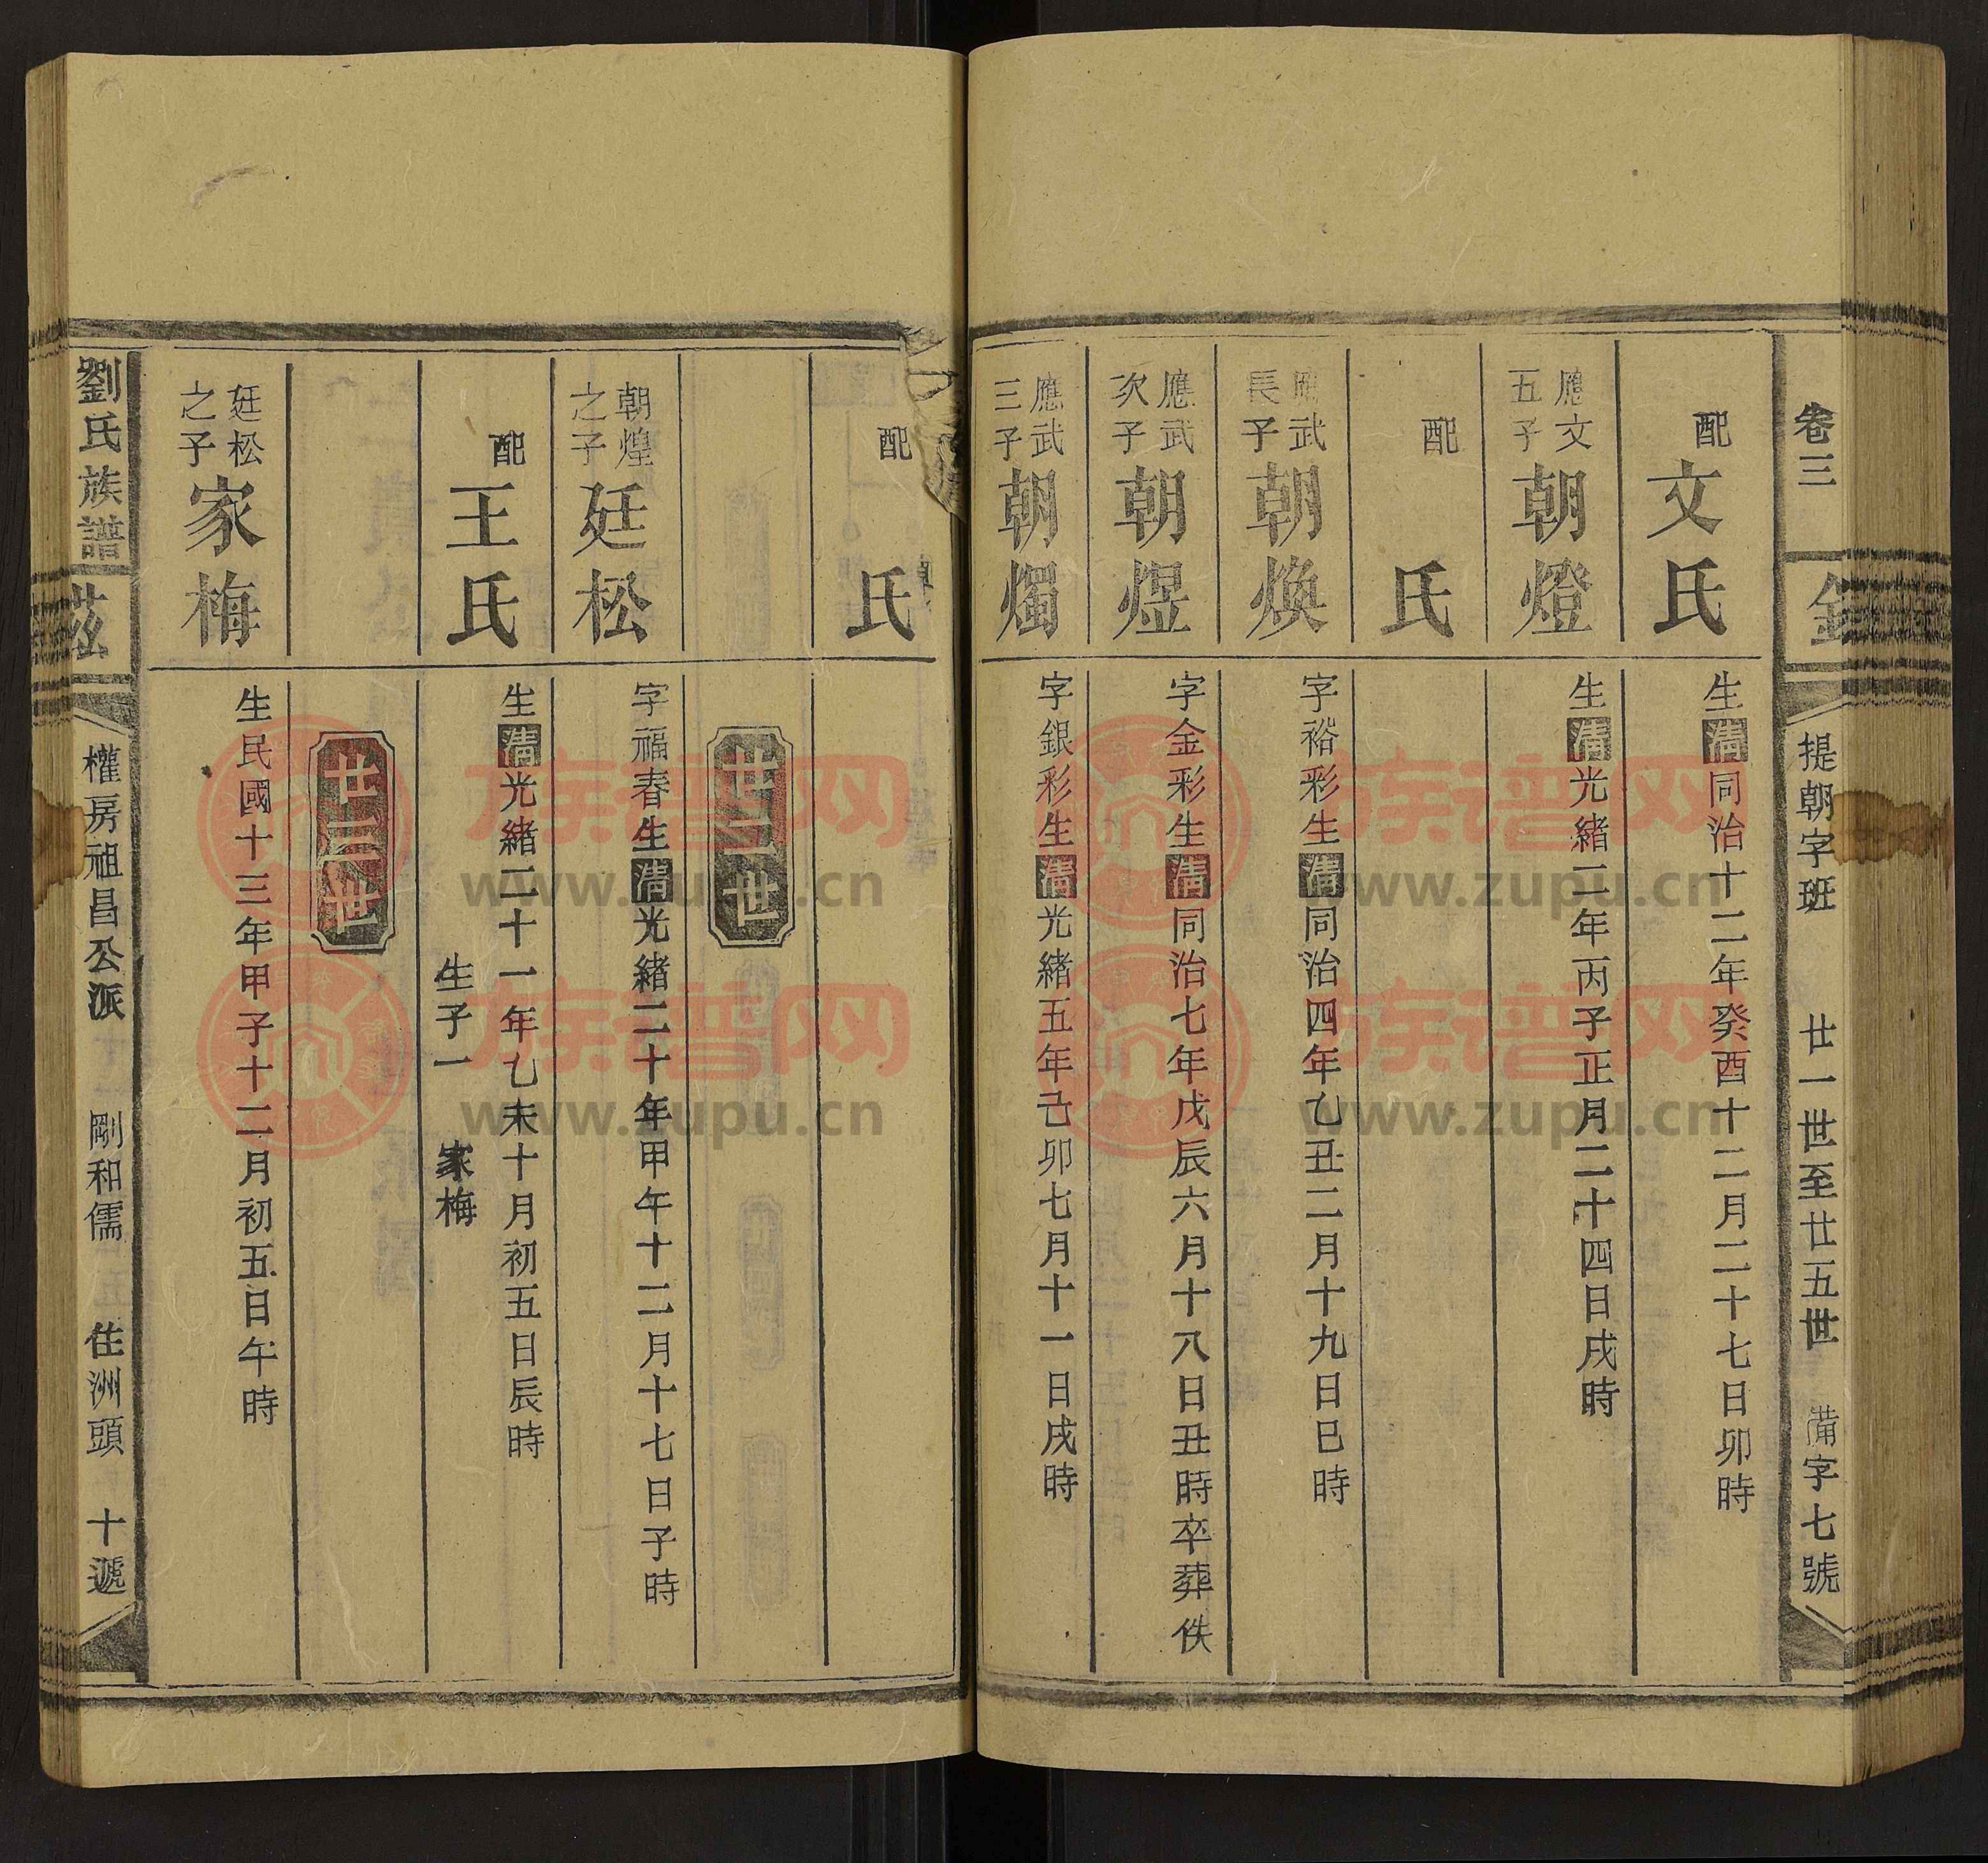 卷三
提朝字班 廿一世至廿五世 備字七號
配 文氏
生清同治十二年癸酉十二月二十七日卯時
應文五子 朝燈
生清光緒二年丙子正月二十四日戌時
配 氏
應武長子 朝煥
字裕彩生清同治四年乙丑二月十九日巳時
應武次子 朝煜
字金彩生清同治七年戊辰六月十八日丑時卒葬佚
應武三子 朝燭
字銀彩生清光緒五年己卯七月十一日戌時
配 氏
廿二世
朝煌之子 廷松
字福春生清光緒二十年甲午十二月十七日子時
配 王氏
生清光緒二十一年乙未十月初五日辰時
生子一 家梅
廿三世
廷松之子 家梅
生民國十三年甲子十二月初五日午時
劉氏族譜
權房祖昌公派 剛和儒 住洲頭 十遞
族谱网
www.zupu.cn
族谱网
www.zupu.cn
族谱网
www.zupu.cn
族谱网
www.zupu.cn